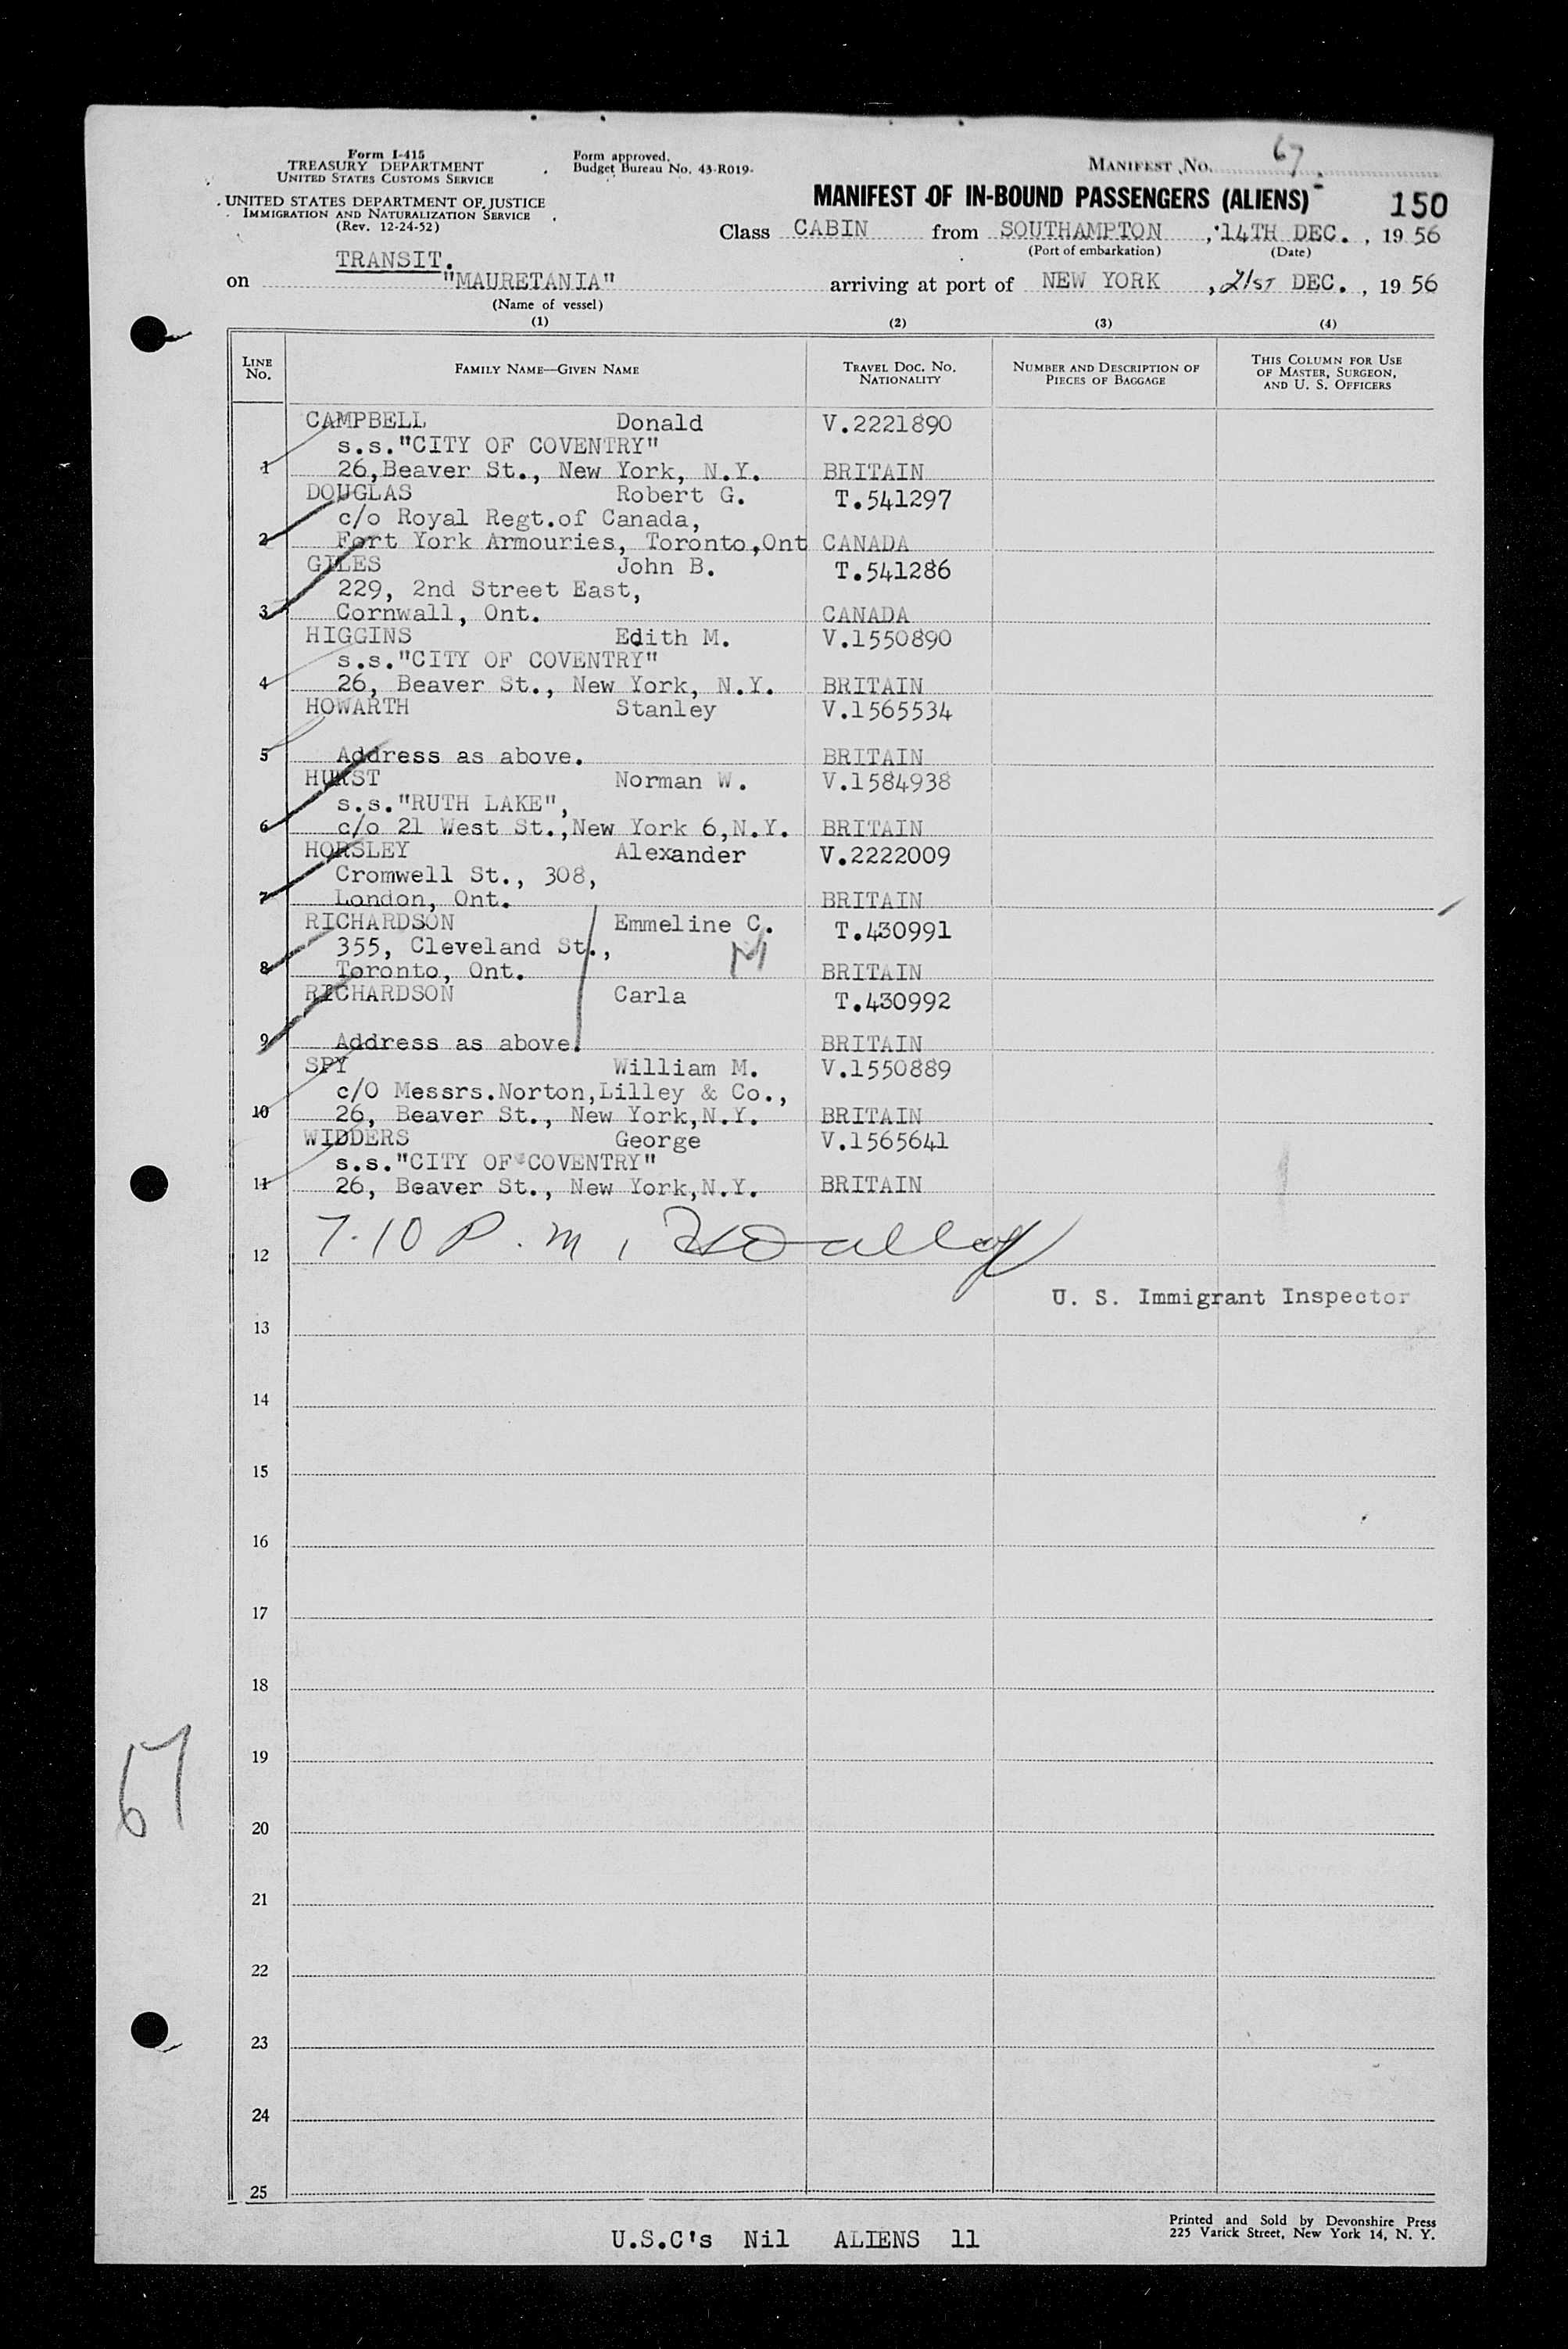 Form I-415
TREASURY DEPARTMENT
UNITED STATES CUSTOMS SERVICE
UNITED STATES DEPARTMENT OF JUSTICE
IMMIGRATION AND NATURALIZATION SERVICE
(Rev. 12-24-52)
Form approved.
Budget Bureau No. 43-R019-
MANIFEST No. 67
MANIFEST OF IN-BOUND PASSENGERS (ALIENS)
150
Class CABIN from SOUTHAMPTON, 14TH DEC., 19 56
(Port of embarkation) (Date)
TRANSIT.
on "MAURETANIA" arriving at port of NEW YORK, 21ST DEC., 19 56
(Name of vessel)
(1) (2) (3) (4)
LINE No. FAMILY NAME—GIVEN NAME TRAVEL DOC. No. NATIONALITY NUMBER AND DESCRIPTION OF PIECES OF BAGGAGE THIS COLUMN FOR USE OF MASTER, SURGEON, AND U. S. OFFICERS
CAMPBELL Donald V.2221890
s.s."CITY OF COVENTRY"
1 26,Beaver St., New York, N.Y. BRITAIN
DOUGLAS Robert G. T.541297
c/o Royal Regt.of Canada,
2 Fort York Armouries, Toronto,Ont CANADA
GILES John B. T.541286
229, 2nd Street East,
3 Cornwall, Ont. CANADA
HIGGINS Edith M. V.1550890
s.s."CITY OF COVENTRY"
4 26, Beaver St., New York, N.Y. BRITAIN
HOWARTH Stanley V.1565534
5 Address as above. BRITAIN
HURST Norman W. V.1584938
s.s."RUTH LAKE",
6 c/o 21 West St.,New York 6,N.Y. BRITAIN
HORSLEY Alexander V.2222009
Cromwell St., 308,
7 London, Ont. BRITAIN
RICHARDSON Emmeline C. T.430991
355, Cleveland St.,
M
8 Toronto, Ont. BRITAIN
RICHARDSON Carla T.430992
9 Address as above. BRITAIN
SPY William M. V.1550889
c/O Messrs.Norton,Lilley & Co.,
10 26, Beaver St., New York,N.Y. BRITAIN
WIDDERS George V.1565641
s.s."CITY OF COVENTRY"
11 26, Beaver St., New York,N.Y. BRITAIN
12 7.10 P.m,
U. S. Immigrant Inspector
13
14
15
16
17
18
67
19
20
21
22
23
24
25
U.S.C's Nil ALIENS 11
Printed and Sold by Devonshire Press
225 Varick Street, New York 14, N. Y.